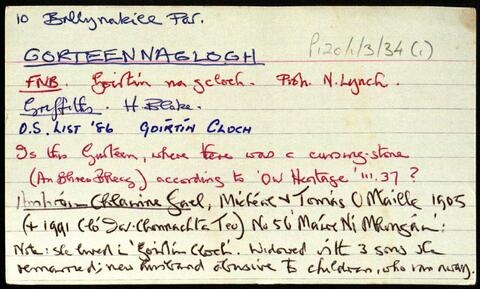 10 Ballynakill Par.
GORTEENNAGLOGH
P120/1/3/34 (i)
FNB. Goirtín na gcloch. Prob. N. Lynch.
Griffiths. H. Blake.
O.S. LIST '86 GOIRTÍN CLOCH
Is this Gorteen, where there was a cursing-stone
according to 'Our Heritage' III.37?
Gael, Micheál & Tomás Ó Máille 1905
(+ 1991 Cló Iar-Chonnachta Teo) No 56 'Máire Ní Mhongáin':
Note: she lived in 'Goirtín Cloch'. Widowed with 3 sons she
remarried; new husband abusive to children, who ran away.